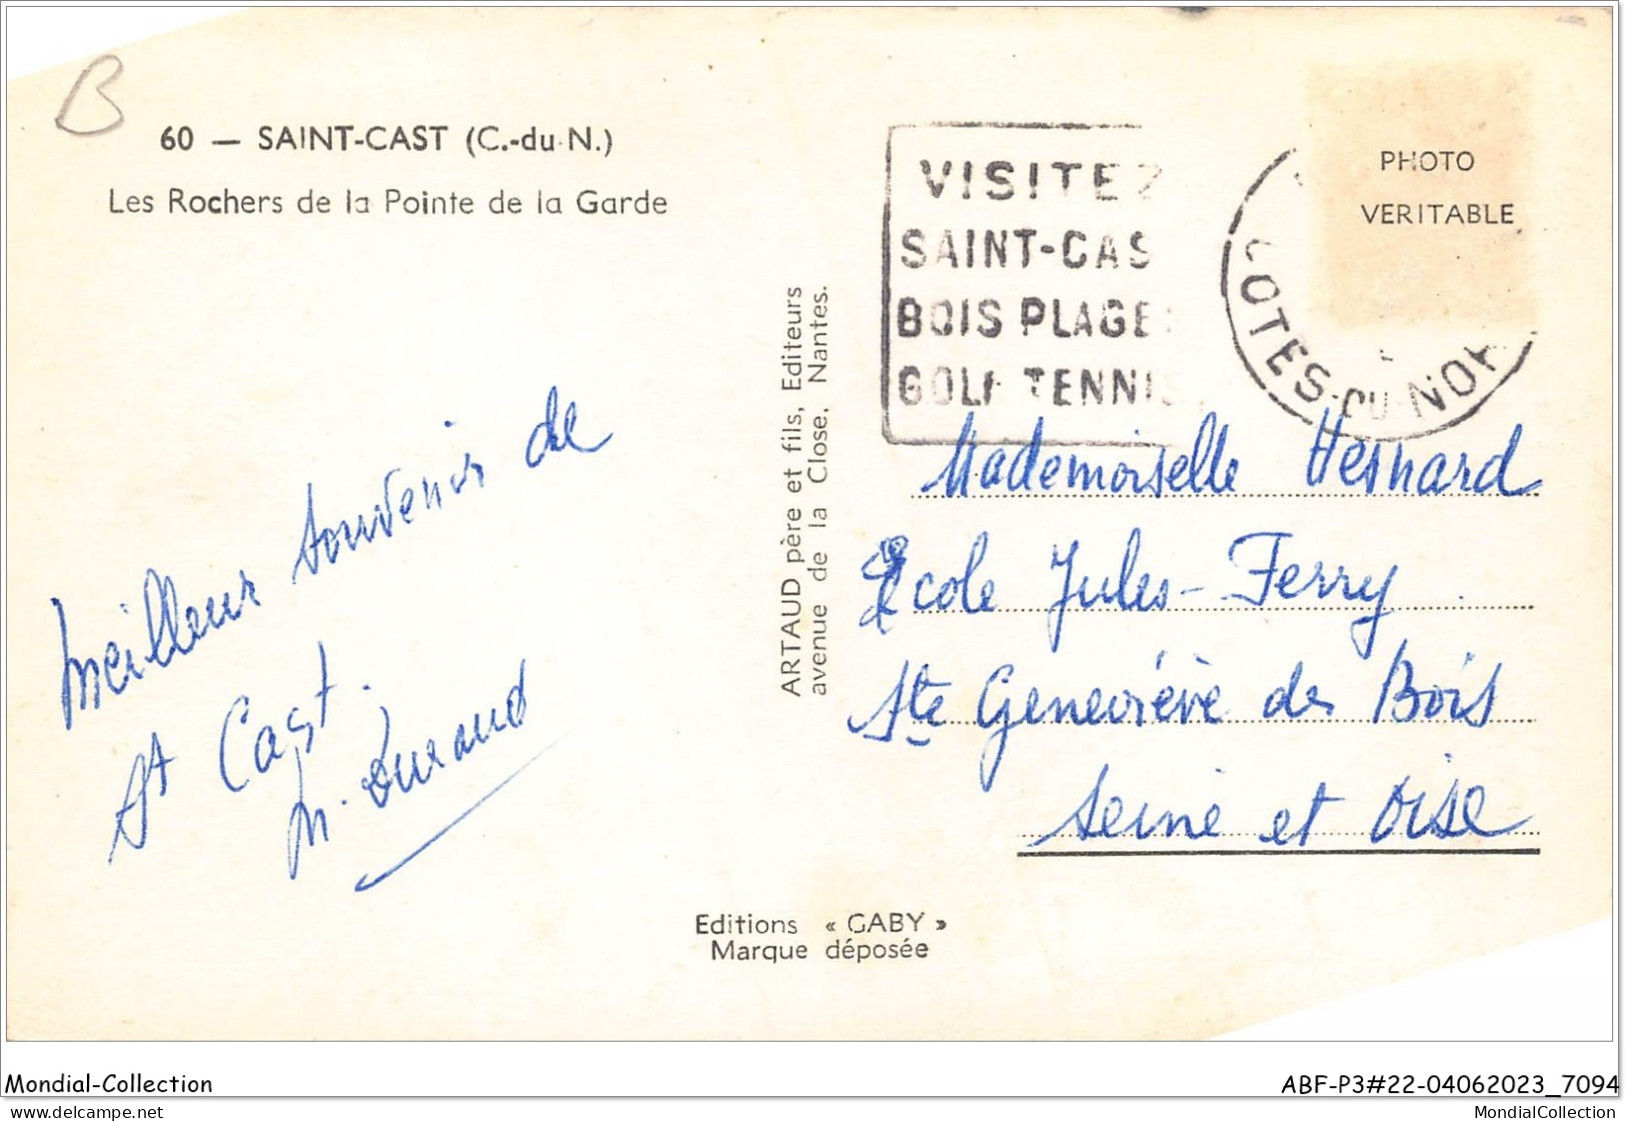 B
60 — SAINT-CAST (C.-du-N.)
Les Rochers de la Pointe de la Garde
VISITEZ
SAINT-CAS
BOIS PLAGE
GOLF TENNIS
COTES-DU-NOR
PHOTO
VERITABLE
ARTAUD père et fils, Editeurs
avenue de la Close, Nantes.
Meilleur souvenir de
St Cast.
M. Durand
Mademoiselle Hesnard
Ecole Jules-Ferry
Ste Geneviève des Bois
Seine et Oise
Editions « GABY »
Marque déposée
Mondial-Collection
ABF-P3#22-04062023_7094
www.delcampe.net
MondialCollection